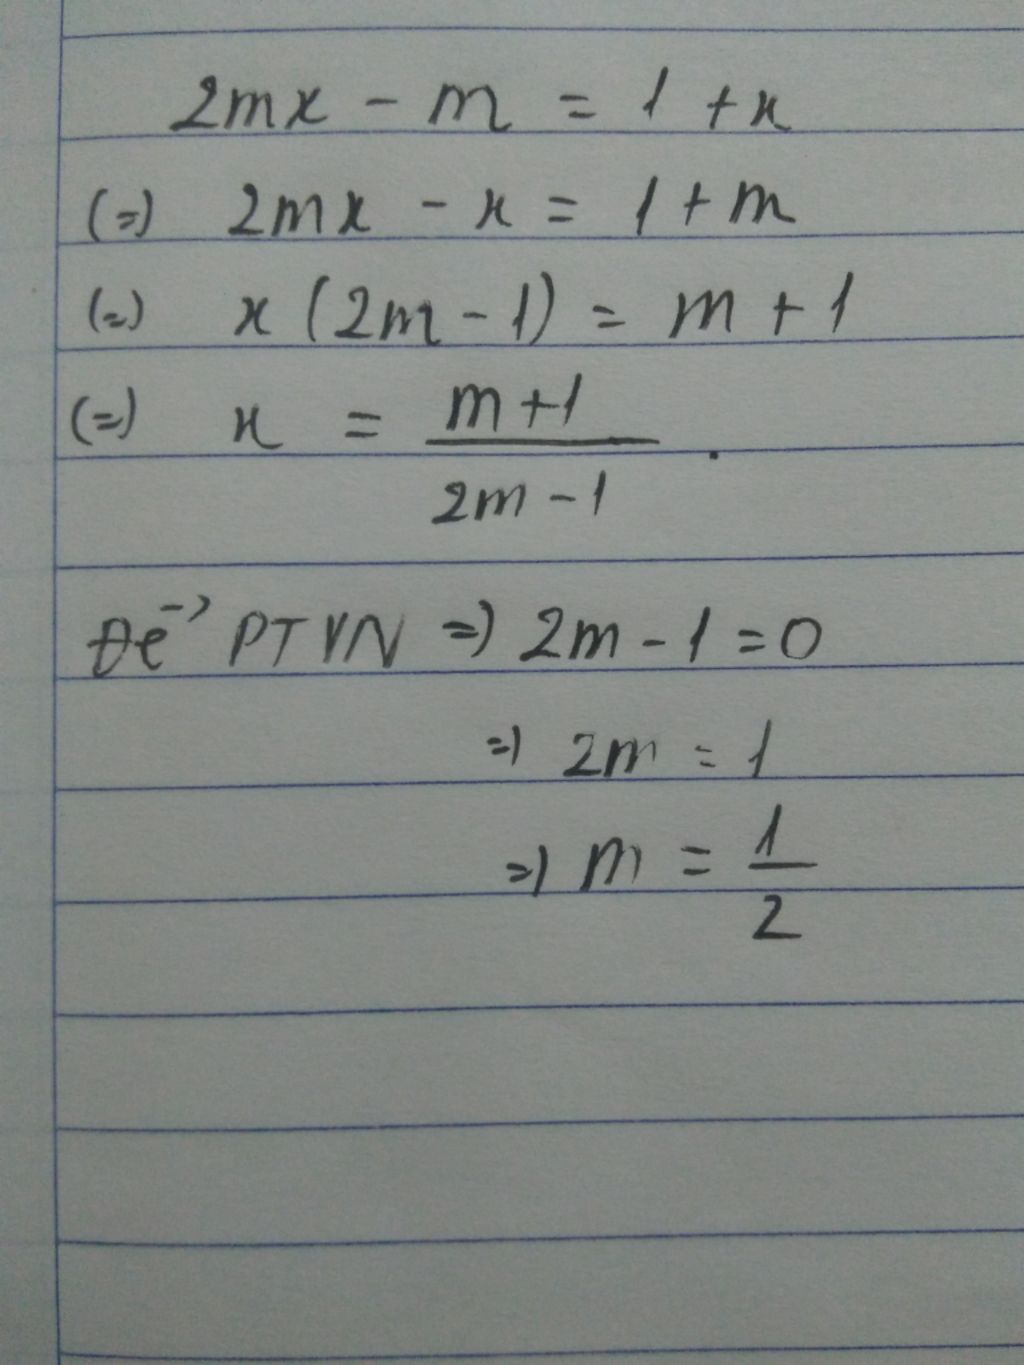 2mx - m = 1 + x
(=) 2mx - x = 1 + m
(=) x (2m - 1) = m + 1
(=) x = m+1 / 2m - 1 .
Để PTVN => 2m - 1 = 0
=> 2m = 1
=> m = 1/2